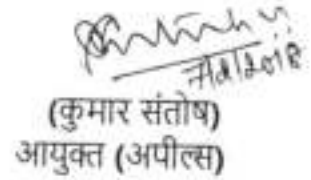 (कुमार संतोष)
आयुक्त (अपील्स)